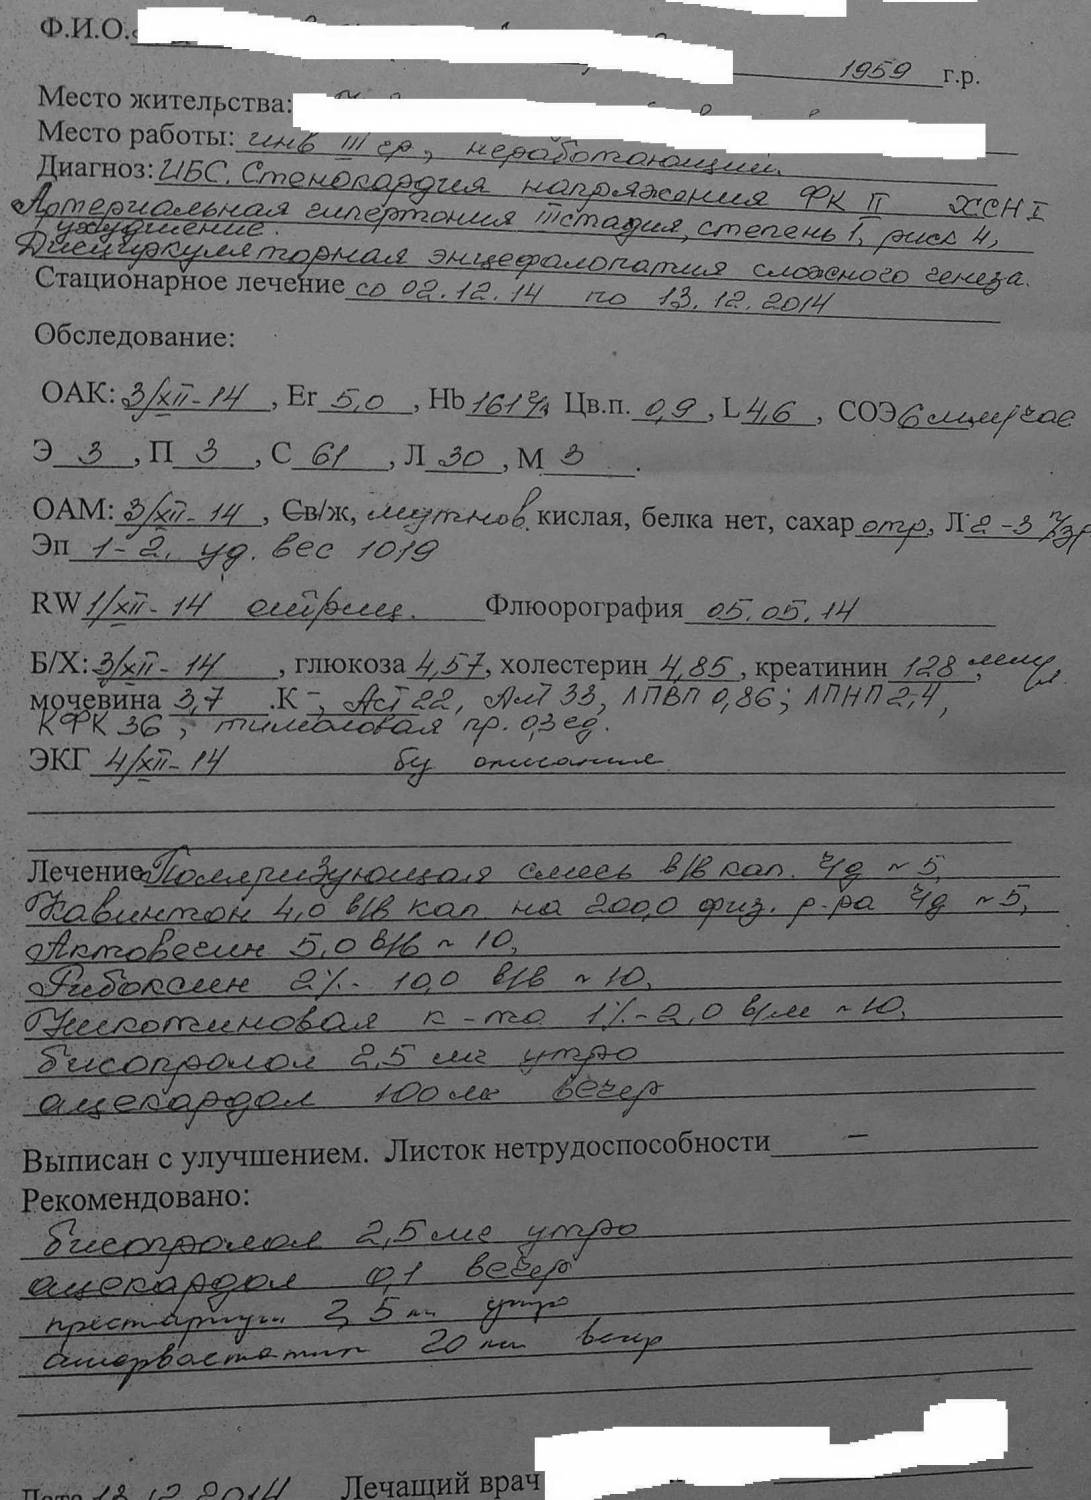 Ф.И.О.
1959 г.р.
Место жительства:
Место работы: инв III гр, неработающий.
Диагноз: ИБС. Стенокардия напряжения ФК II ХСН I
Артериальная гипертония III стадия, степень 1, риск 4,
ухудшение.
Дисциркуляторная энцефалопатия сложного генеза.
Стационарное лечение со 02.12.14 по 13.12.2014
Обследование:
ОАК: 3/XII-14, Er 5,0, Hb 161 г/л Цв.п. 0,9, L 4,6, СОЭ 6 мм/час
Э 3, П 3, С 61, Л 30, М 3.
ОАМ: 3/XII-14, Св/ж, мутнов. кислая, белка нет, сахар отр, Л 2-3
Эп 1-2, уд. вес 1019
RW 1/XII-14 Флюорография 05.05.14
Б/Х: 3/XII-14, глюкоза 4,57, холестерин 4,85, креатинин 128
мочевина 3,7 .К -, АсТ 22, АлТ 33, ЛПВП 0,86; ЛПНП 2,4,
КФК 36, тимоловая пр. 0,3 ед.
ЭКГ 4/XII-14 б/у описание
Лечение Поляризующая смесь в/в кап. ч/д ~ 5,
Кавинтон 4,0 в/в кап. на 200,0 физ. р-ра ч/д ~ 5,
Актовегин 5,0 в/в ~ 10,
Рибоксин 2% - 10,0 в/в ~ 10,
Никотиновая к-та 1% - 2,0 в/м ~ 10,
бисопролол 2,5 мг утро
ацекардол 100 мг вечер
Выписан с улучшением. Листок нетрудоспособности –
Рекомендовано:
бисопролол 2,5 мг утро
ацекардол 0,1 вечер
престариум 2,5 мг утро
аторвастатин 20 мг вечер
Дата 13.12.2014 Лечащий врач